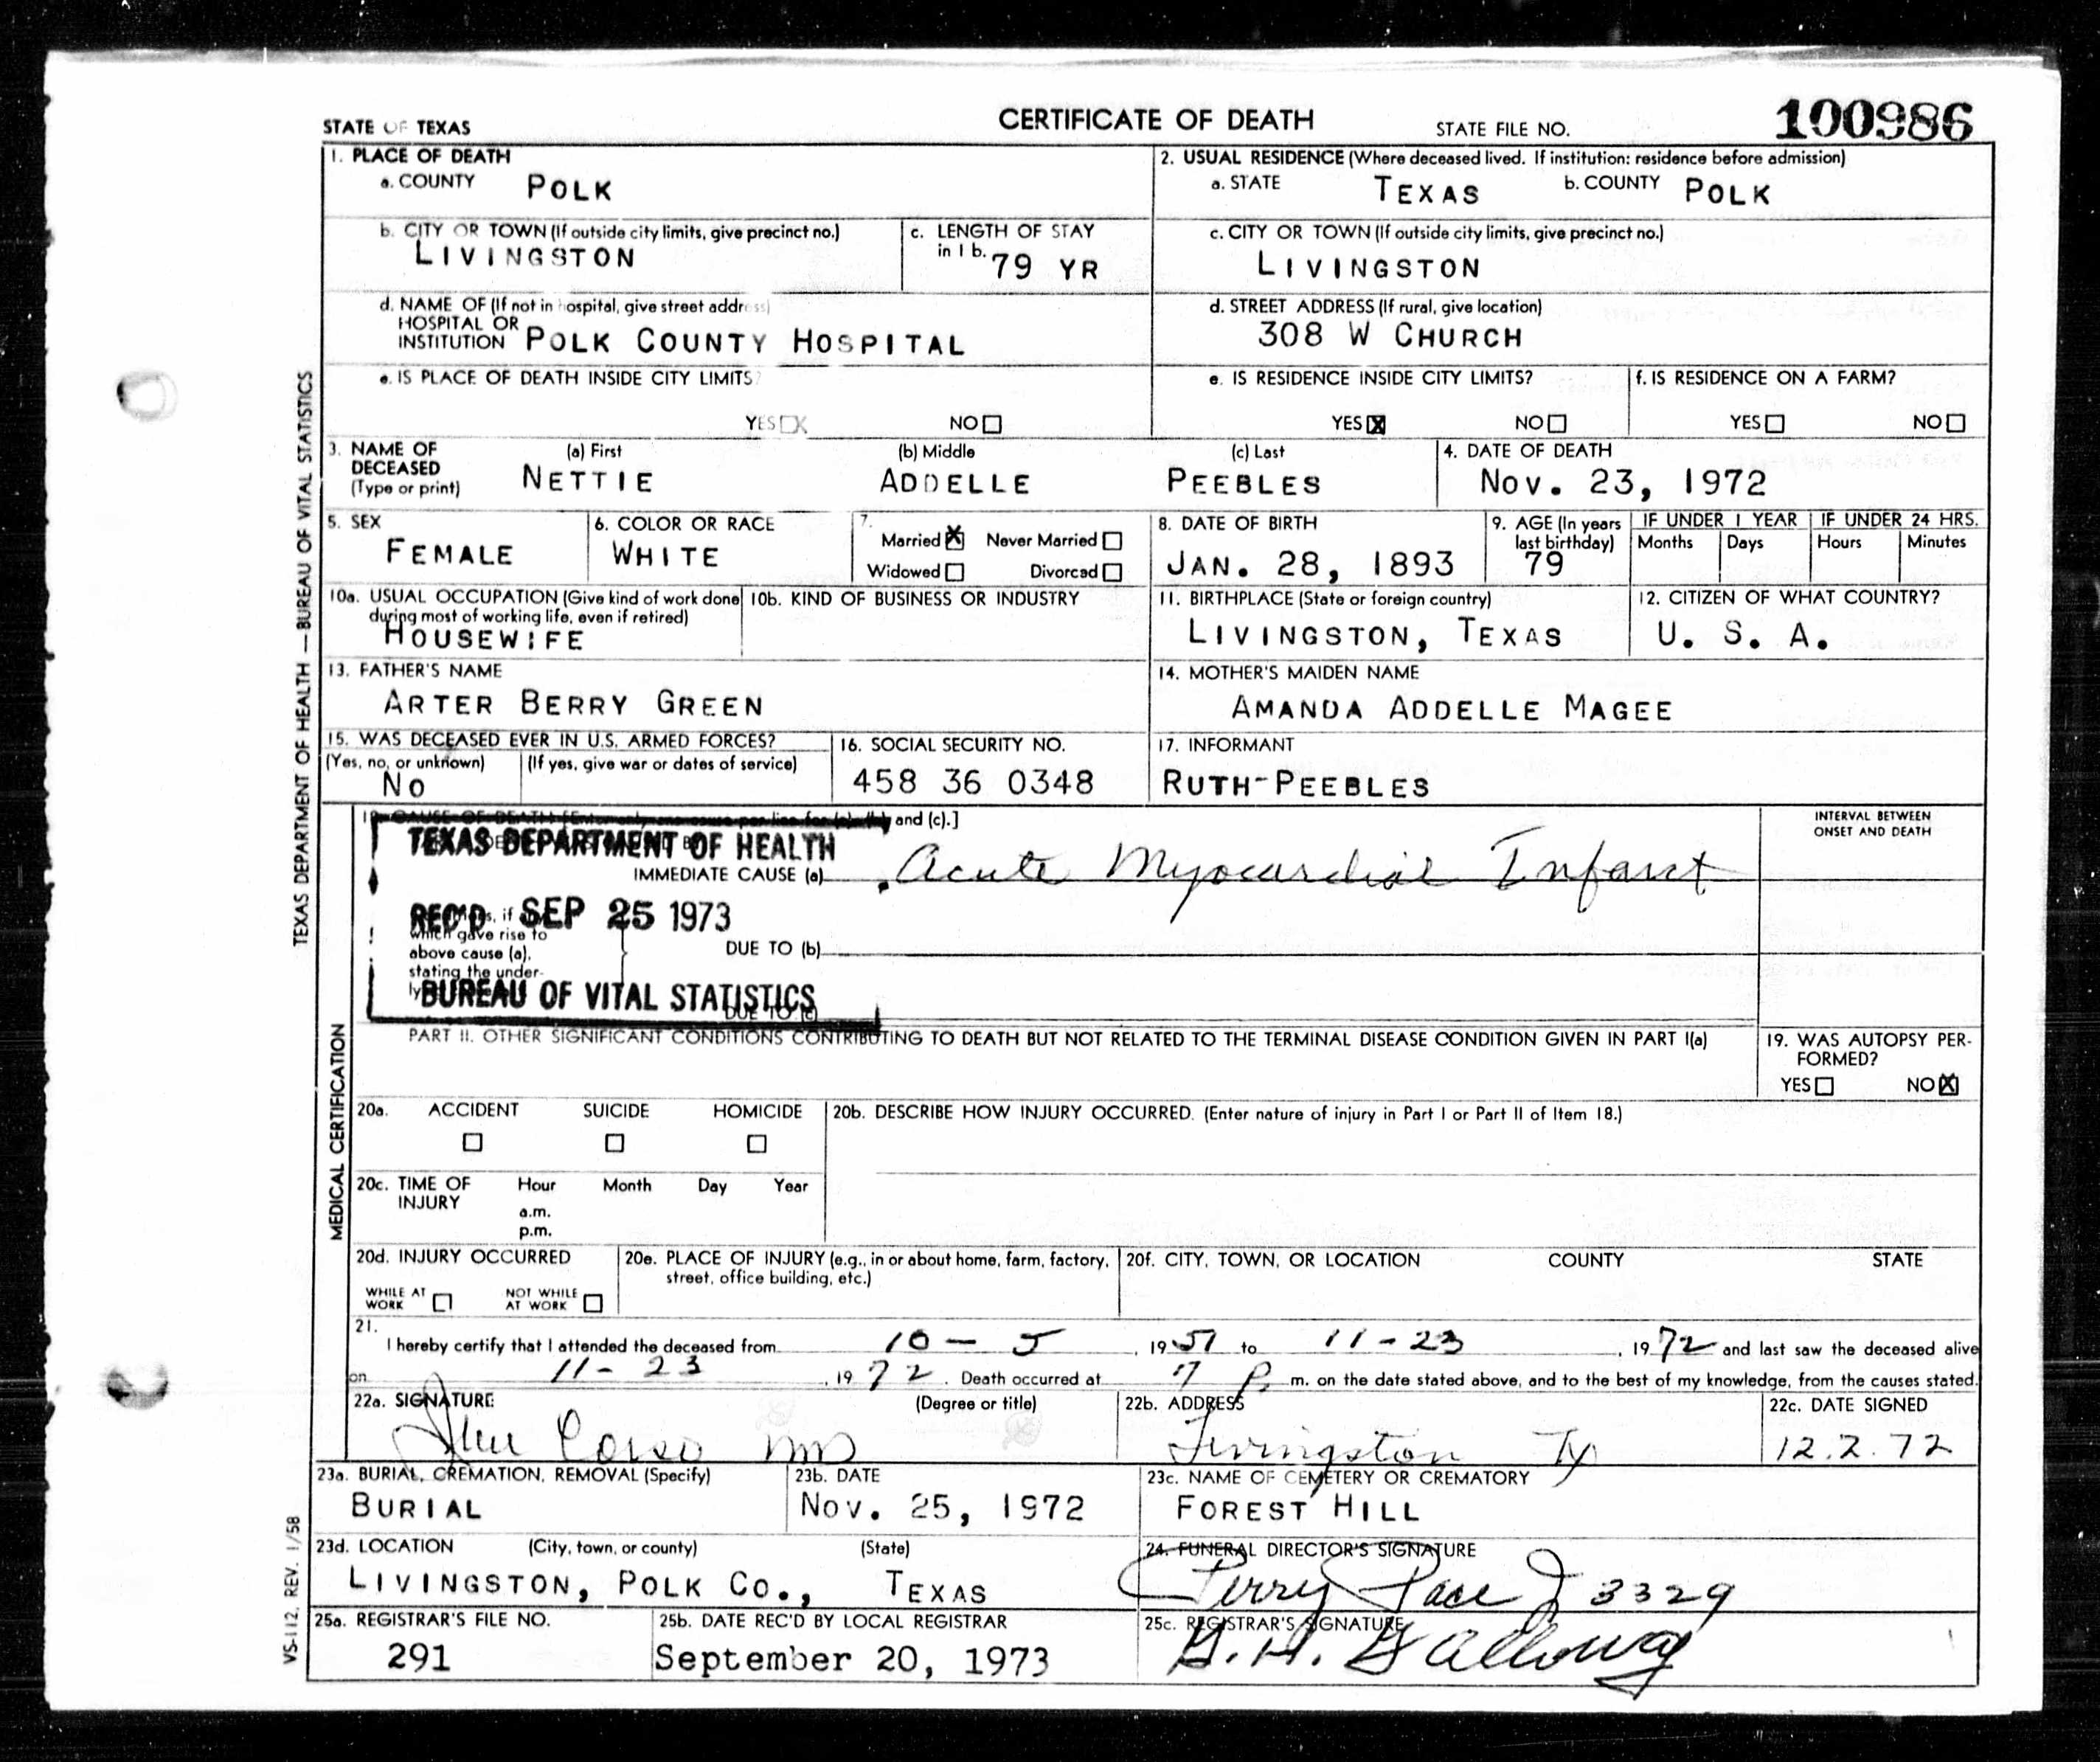 STATE OF TEXAS
CERTIFICATE OF DEATH
STATE FILE NO. 100986
1. PLACE OF DEATH
a. COUNTY POLK
2. USUAL RESIDENCE (Where deceased lived. If institution: residence before admission)
a. STATE TEXAS b. COUNTY POLK
b. CITY OR TOWN (If outside city limits, give precinct no.)
LIVINGSTON
c. LENGTH OF STAY
in 1 b. 79 YR
c. CITY OR TOWN (If outside city limits, give precinct no.)
LIVINGSTON
d. NAME OF (If not in hospital, give street address)
HOSPITAL OR
INSTITUTION POLK COUNTY HOSPITAL
d. STREET ADDRESS (If rural, give location)
308 W CHURCH
e. IS PLACE OF DEATH INSIDE CITY LIMITS?
YES X NO
e. IS RESIDENCE INSIDE CITY LIMITS?
YES X NO
f. IS RESIDENCE ON A FARM?
YES NO
3. NAME OF
DECEASED
(Type or print)
(a) First
NETTIE
(b) Middle
ADDELLE
(c) Last
PEEBLES
4. DATE OF DEATH
NOV. 23, 1972
5. SEX
FEMALE
6. COLOR OR RACE
WHITE
7.
Married X Never Married
Widowed Divorced
8. DATE OF BIRTH
JAN. 28, 1893
9. AGE (In years
last birthday)
79
IF UNDER 1 YEAR
Months Days
IF UNDER 24 HRS.
Hours Minutes
10a. USUAL OCCUPATION (Give kind of work done
during most of working life, even if retired)
HOUSEWIFE
10b. KIND OF BUSINESS OR INDUSTRY
11. BIRTHPLACE (State or foreign country)
LIVINGSTON, TEXAS
12. CITIZEN OF WHAT COUNTRY?
U. S. A.
13. FATHER'S NAME
ARTER BERRY GREEN
14. MOTHER'S MAIDEN NAME
AMANDA ADDELLE MAGEE
15. WAS DECEASED EVER IN U.S. ARMED FORCES?
(Yes, no, or unknown) (If yes, give war or dates of service)
NO
16. SOCIAL SECURITY NO.
458 36 0348
17. INFORMANT
RUTH-PEEBLES
and (c).]
INTERVAL BETWEEN
ONSET AND DEATH
TEXAS DEPARTMENT OF HEALTH
IMMEDIATE CAUSE (a) Acute Myocardial Infarct
REC'D SEP 25 1973
which gave rise to
above cause (a),
stating the under-
DUE TO (b)
BUREAU OF VITAL STATISTICS
DUE TO (c)
PART II. OTHER SIGNIFICANT CONDITIONS CONTRIBUTING TO DEATH BUT NOT RELATED TO THE TERMINAL DISEASE CONDITION GIVEN IN PART I(a)
19. WAS AUTOPSY PER-
FORMED?
YES NO X
20a. ACCIDENT SUICIDE HOMICIDE
20b. DESCRIBE HOW INJURY OCCURRED. (Enter nature of injury in Part I or Part II of Item 18.)
20c. TIME OF
INJURY
Hour Month Day Year
a.m.
p.m.
20d. INJURY OCCURRED
WHILE AT
WORK
NOT WHILE
AT WORK
20e. PLACE OF INJURY (e.g., in or about home, farm, factory,
street, office building, etc.)
20f. CITY, TOWN, OR LOCATION COUNTY STATE
21.
I hereby certify that I attended the deceased from 10-5, 1951 to 11-23, 1972 and last saw the deceased alive
on 11-23, 1972. Death occurred at 7 P. m. on the date stated above, and to the best of my knowledge, from the causes stated.
22a. SIGNATURE (Degree or title)
MD
22b. ADDRESS
Livingston Tx
22c. DATE SIGNED
12.2.72
23a. BURIAL, CREMATION, REMOVAL (Specify)
BURIAL
23b. DATE
NOV. 25, 1972
23c. NAME OF CEMETERY OR CREMATORY
FOREST HILL
23d. LOCATION (City, town, or county) (State)
LIVINGSTON, POLK CO., TEXAS
24. FUNERAL DIRECTOR'S SIGNATURE
Perry Pace J 3329
25a. REGISTRAR'S FILE NO.
291
25b. DATE REC'D BY LOCAL REGISTRAR
September 20, 1973
25c. REGISTRAR'S SIGNATURE
G. H. Galloway
TEXAS DEPARTMENT OF HEALTH — BUREAU OF VITAL STATISTICS
MEDICAL CERTIFICATION
VS-112, REV. 1/58